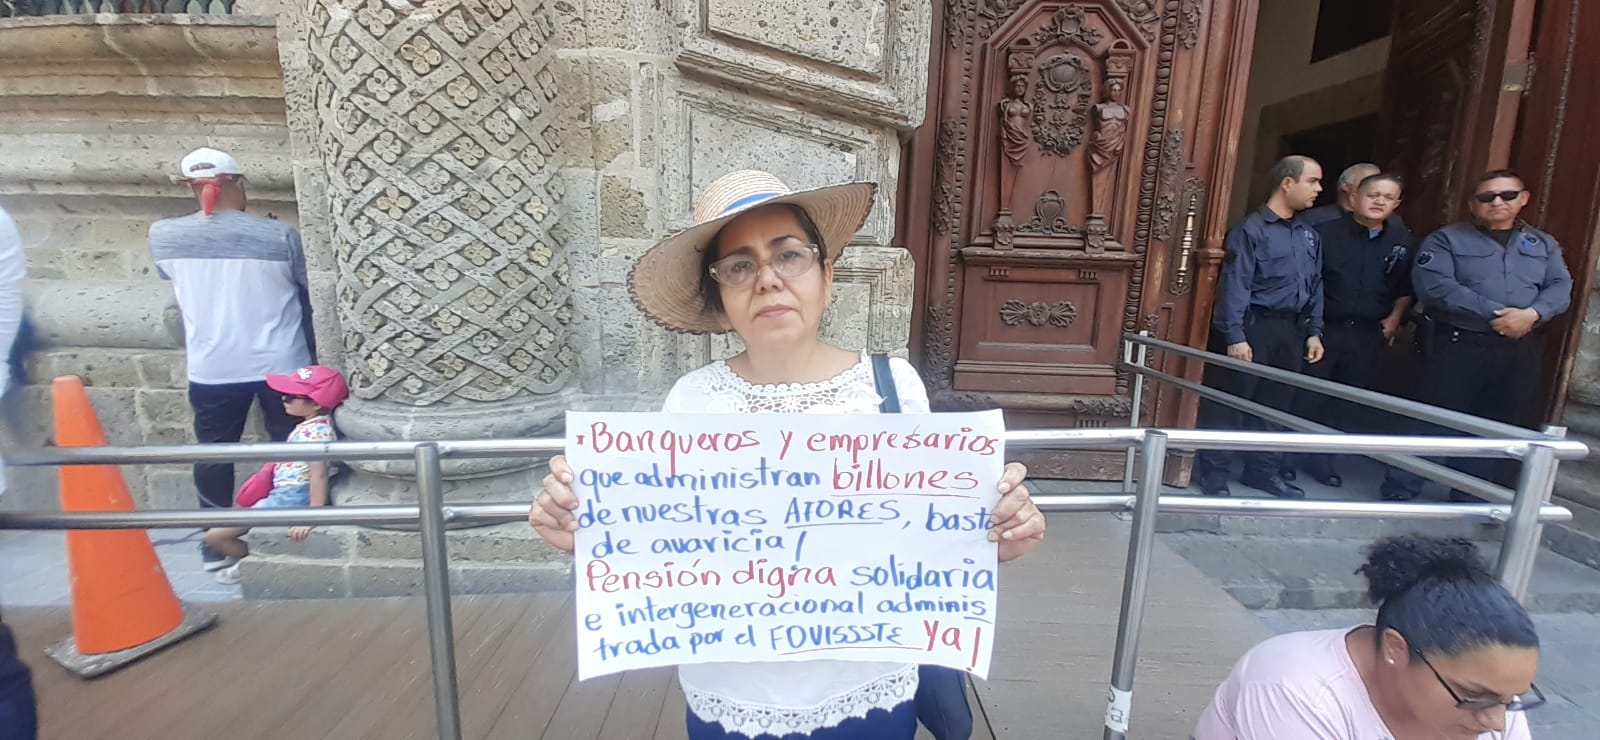 *Banqueros y empresarios
que administran billones
de nuestras AFORES, basta
de avaricia!
Pensión digna solidaria
e intergeneracional adminis
trada por el FOVISSSTE Ya!